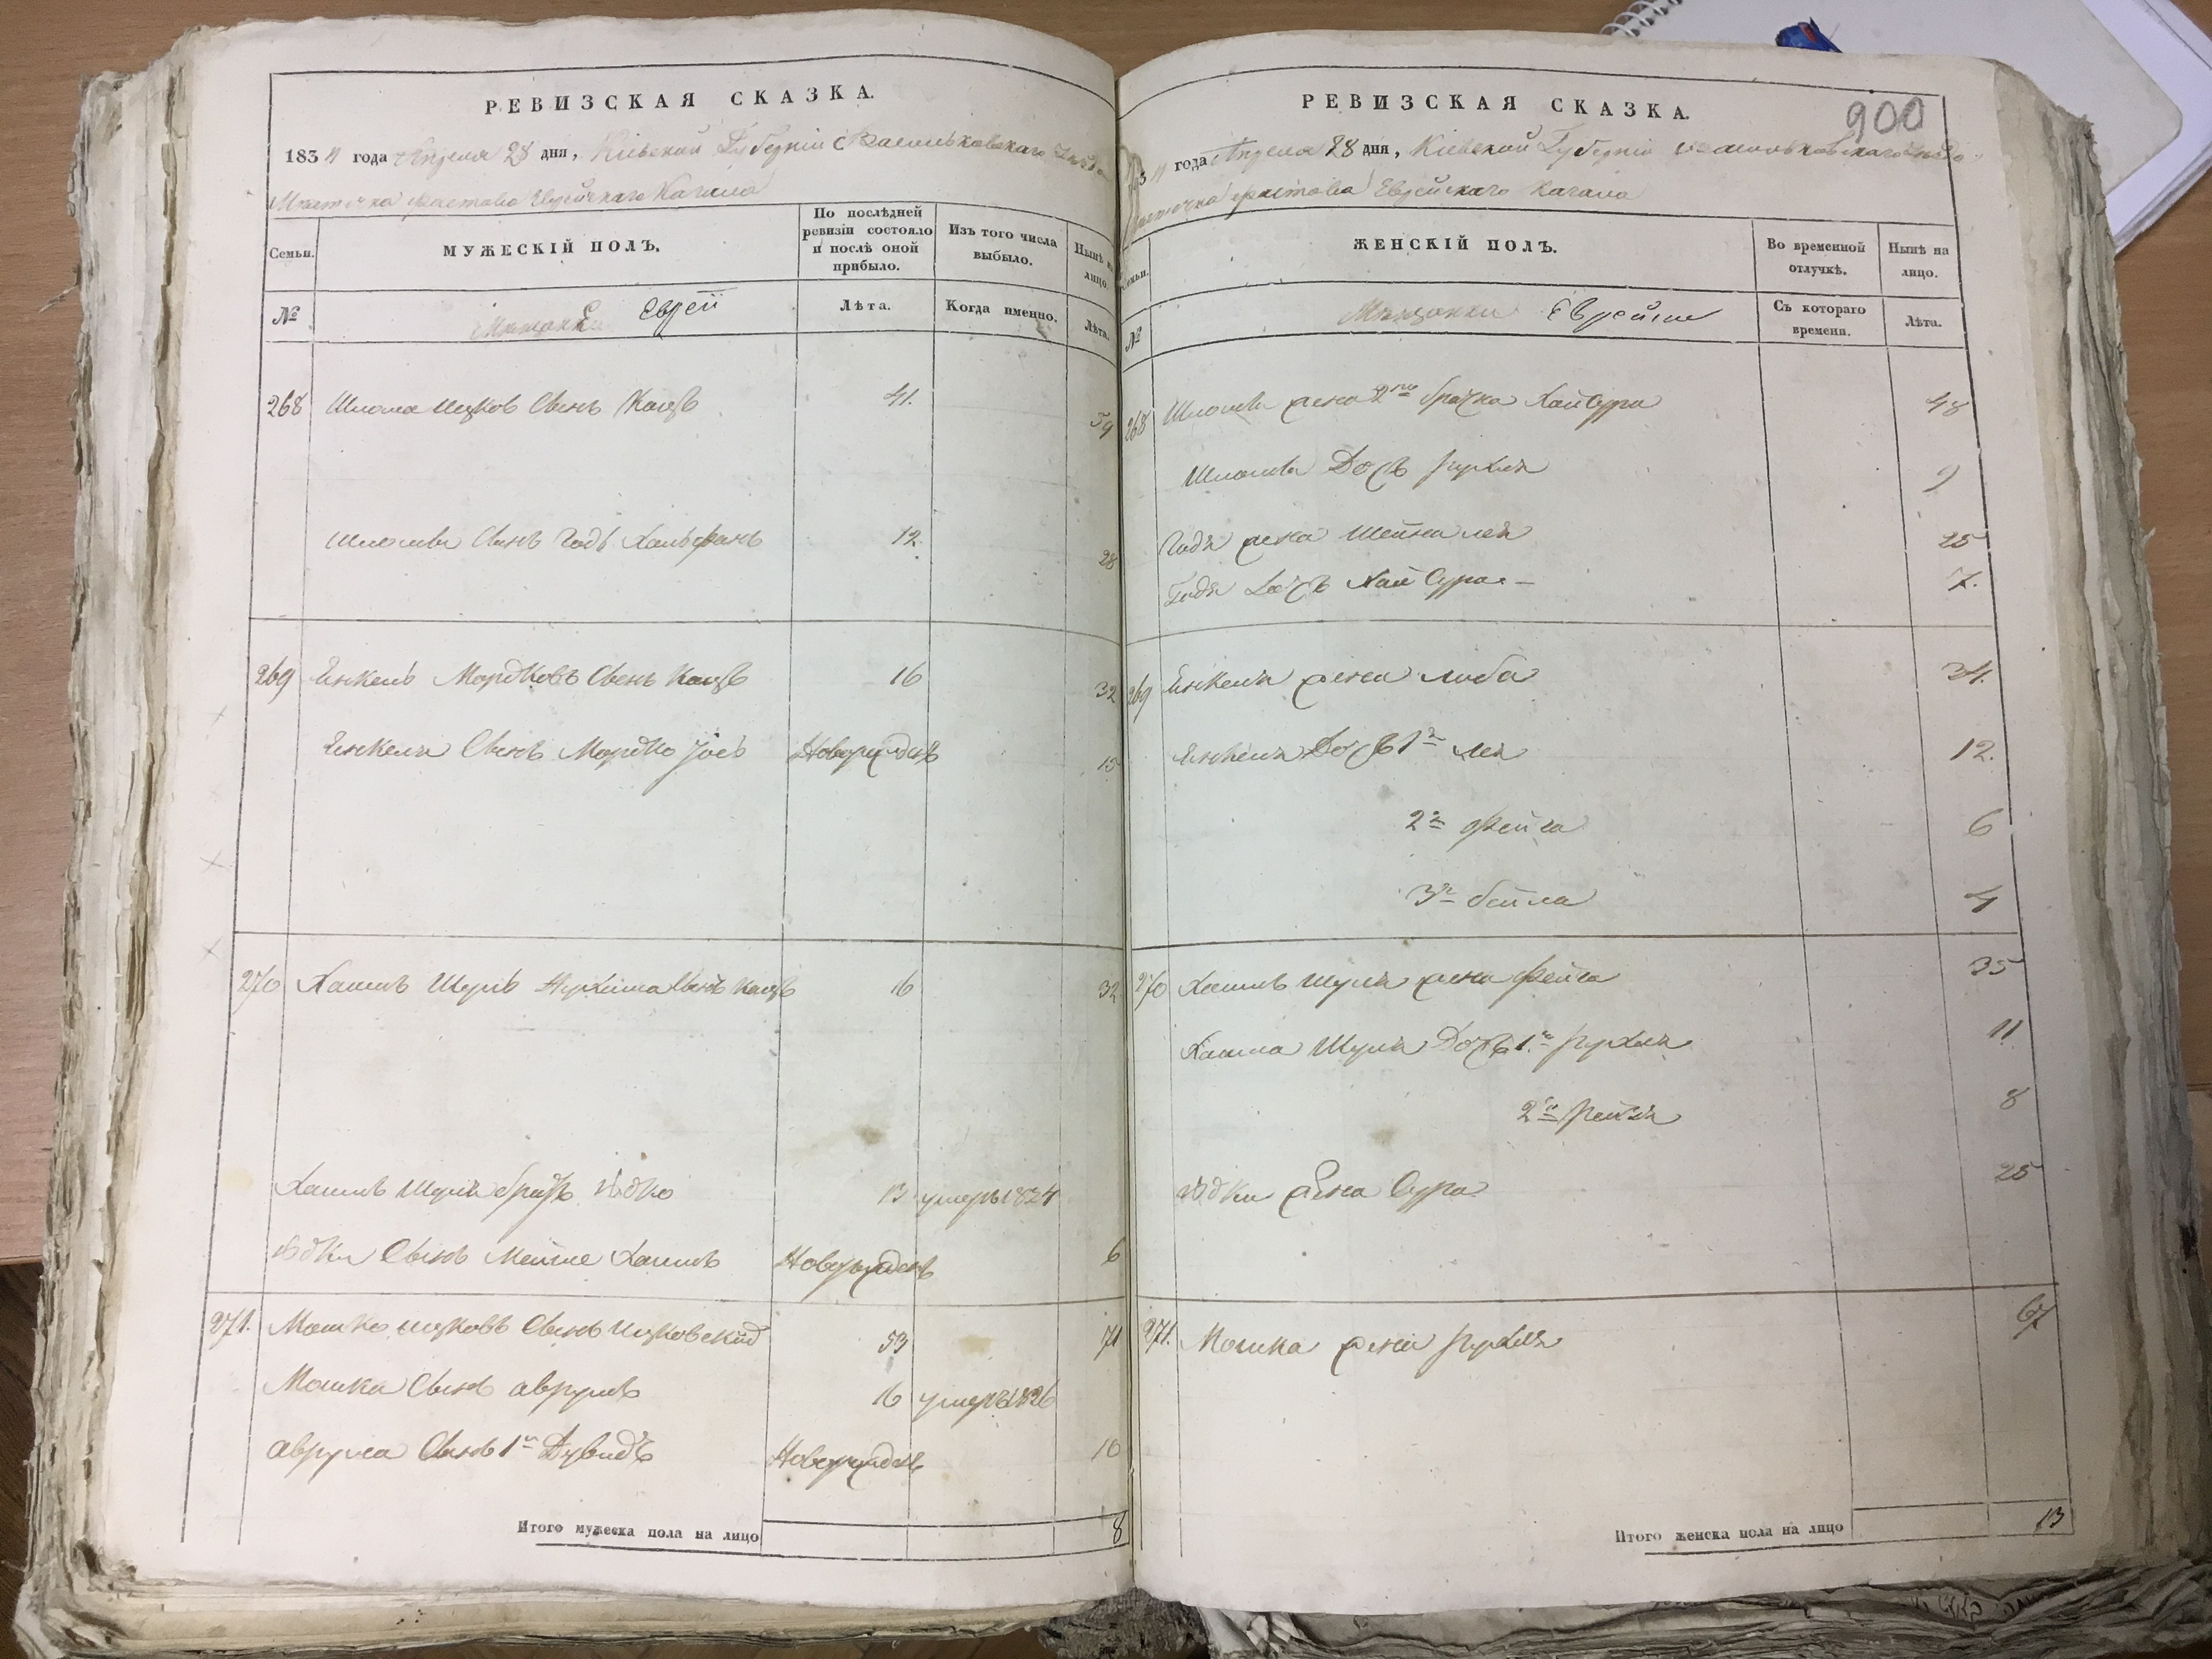 РЕВИЗСКАЯ СКАЗКА.
1834 года Апреля 28 дня, Кіевской Губерніи Васильковскаго
Местечка Фастова Еврейскаго Кагала
Семьи.
МУЖЕСКІЙ ПОЛЪ.
По послѣдней ревизіи состояло и послѣ оной прибыло.
Изъ того числа выбыло.
Нынѣ на лицо
№
Мещане Евреи
Лѣта.
Когда именно.
Лѣта.
268 Шлома Ицков Сынъ Кацъ 41. 59
Шломы Сынъ Годь Хальфанъ 12. 28
269 Янкель Мордковъ Сынъ Кацъ 16 32
Янкеля Сынъ Мордко Іось Новорожденъ 15
270 Хаимъ Шуль Нухима Сынъ Кацъ 16 32
Хаимъ Шуля братъ 13 умеръ 1824
Сынъ Хаимъ Новорожденъ 6
271. Мошко Ицковъ Сынъ Ицковский 53 71
Мошка Сынъ Аврумъ 16 умеръ 1826
Аврума Сынъ 1й Дувидъ Новорожденъ 10
Итого мужеска пола на лицо 8
РЕВИЗСКАЯ СКАЗКА.
900
года Апреля 28 дня, Кіевской Губерніи Васильковскаго
Фастова Еврейскаго Кагала
Семьи.
ЖЕНСКІЙ ПОЛЪ.
Во временной отлучкѣ.
Нынѣ на лицо.
№
Мещанки Еврейки
Съ котораго времени.
Лѣта.
268 Шломы жена 2го брачка Хай Сура 48
Шломы Дочь Рухля 9
Годя жена Шейна Лея 25
Годя Дочь Хай Сура 7.
269 Янкеля жена Люба 34.
Янкеля Дочь 1я Лея 12.
2я Фейга 6
3я Бейла 4
270 Хаимъ Шуля жена Фейга 35
Хаима Шуля Дочь 1я Рухля 11
2я 8
жена Сура 25
271. Мошка жена Рухля 67
Итого женска пола на лицо 13